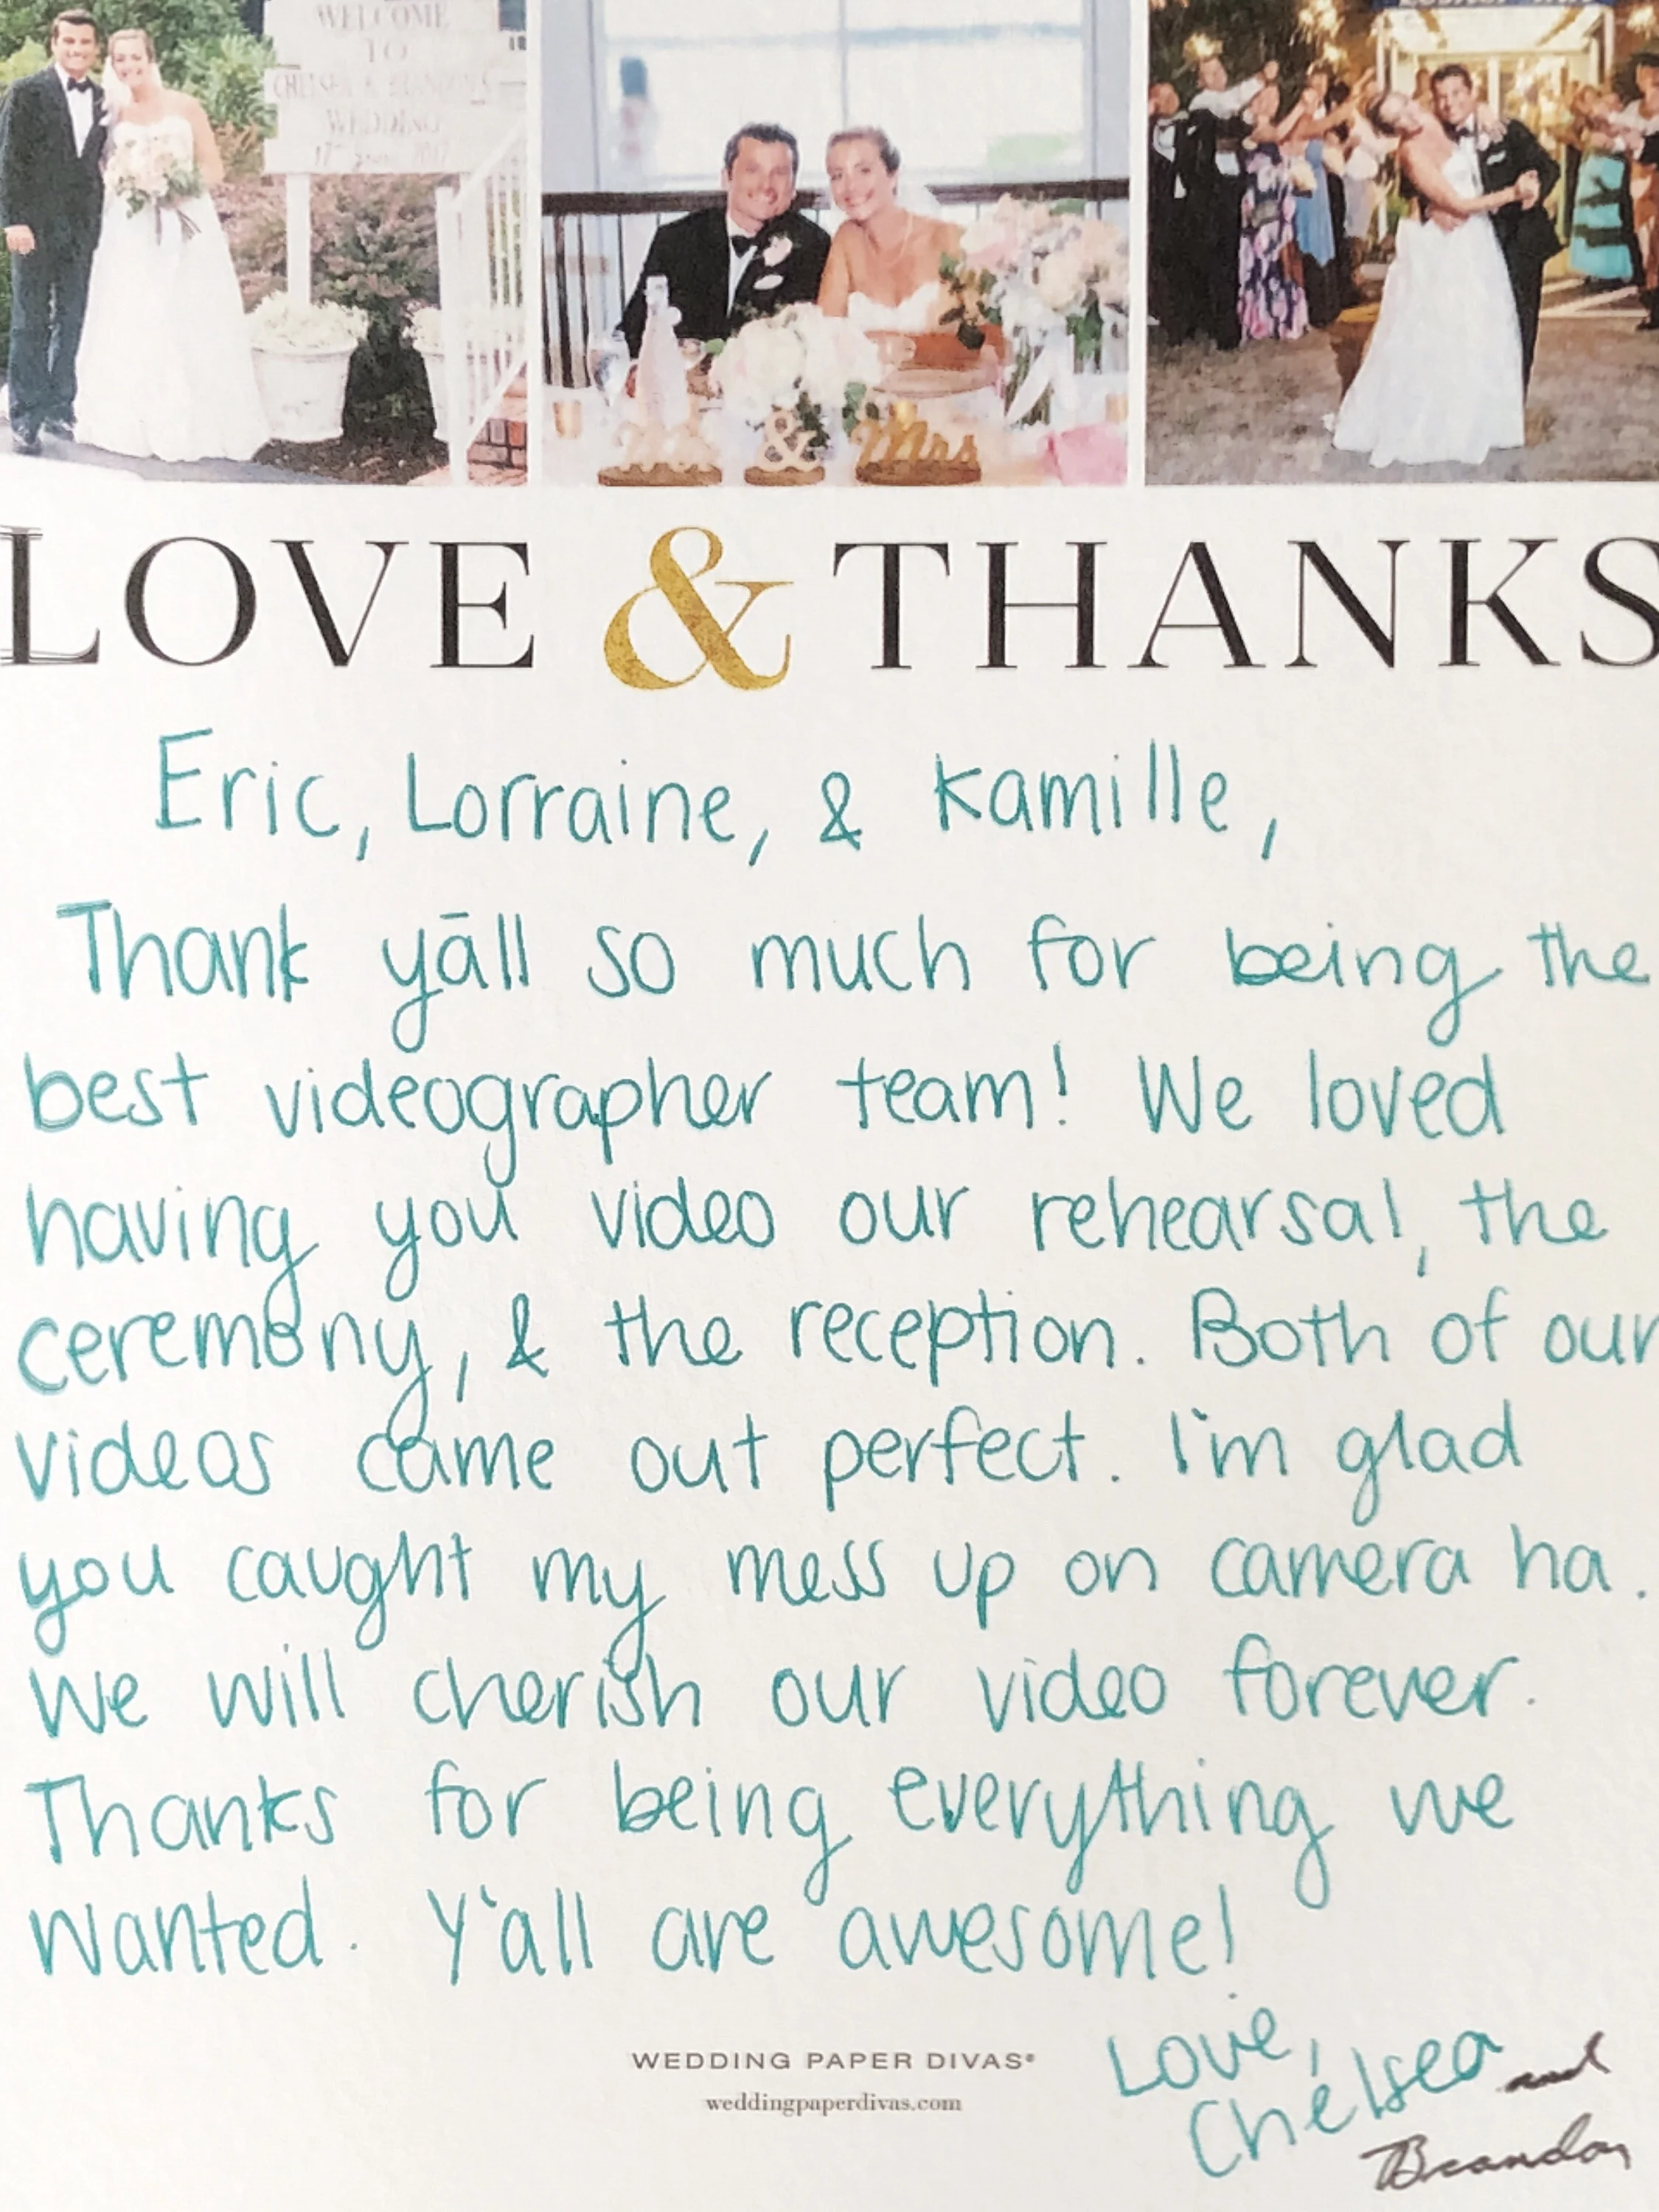 WELCOME
TO
CHELSEA & BRANDON'S
WEDDING
Mr & Mrs
LOVE & THANKS
Eric, Lorraine, & Kamille,
Thank y'all so much for being the
best videographer team! We loved
having you video our rehearsal, the
ceremony, & the reception. Both of our
videos came out perfect. I'm glad
you caught my mess up on camera ha.
We will cherish our video forever.
Thanks for being everything we
wanted. Y'all are awesome!
Love,
Chelsea and
Brandon
WEDDING PAPER DIVAS®
weddingpaperdivas.com